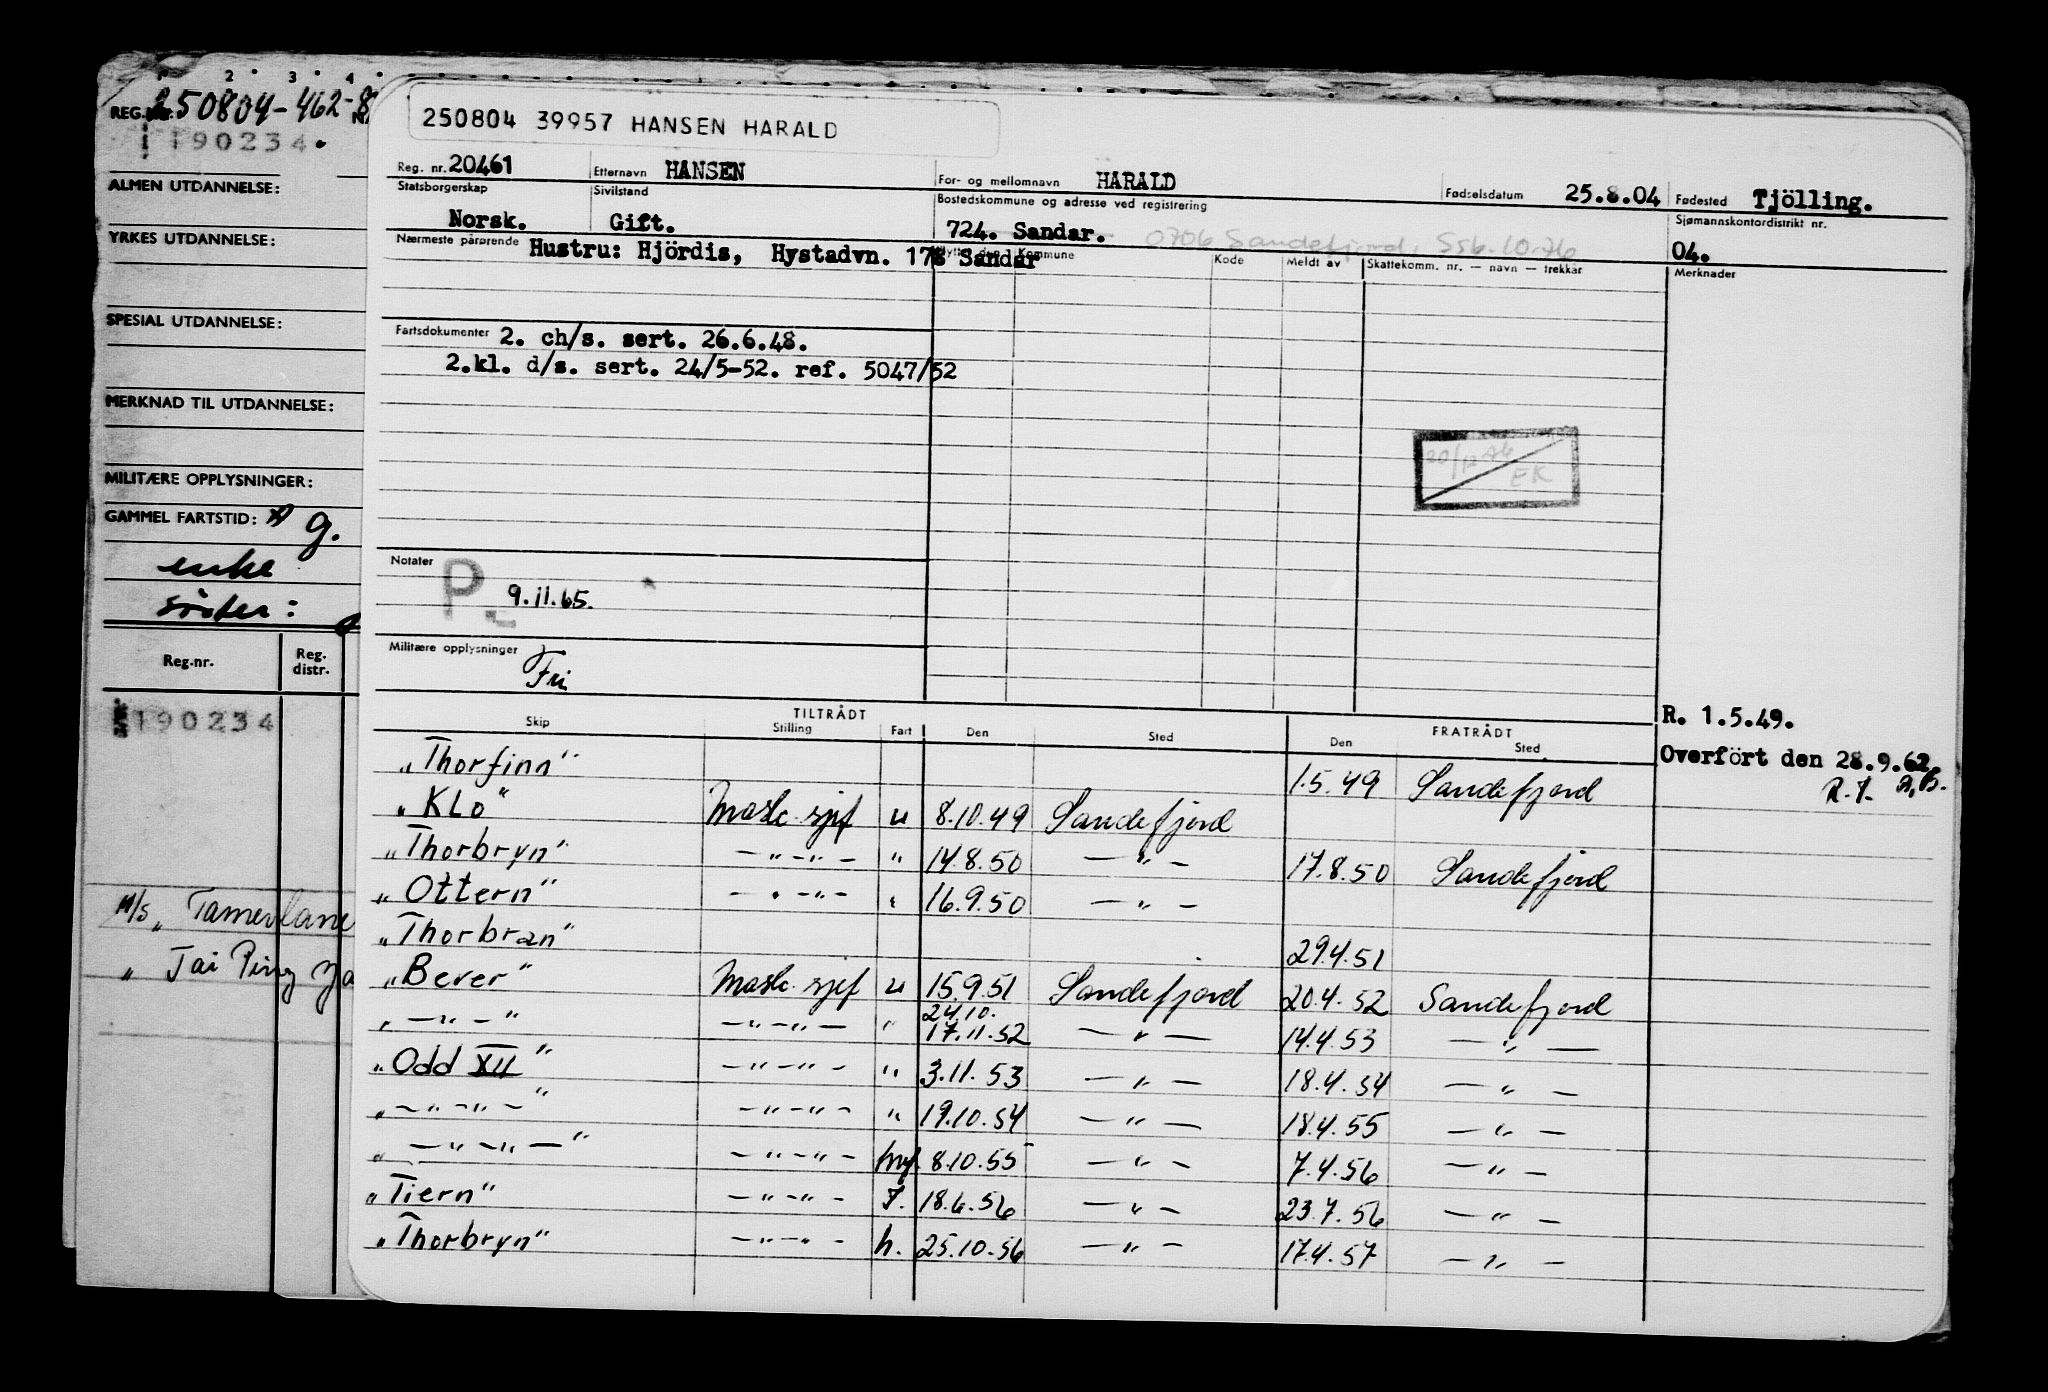 1 2 3 4
REG. NR. 250804-462-8
190234
ALMEN UTDANNELSE:
YRKES UTDANNELSE:
SPESIAL UTDANNELSE:
MERKNAD TIL UTDANNELSE:
MILITÆRE OPPLYSNINGER:
GAMMEL FARTSTID: g.
enke
søster:
Reg.nr. Reg. distr.
190234
M/S „Tamerlane
„ Tai Ping
250804 39957 HANSEN HARALD
Reg. nr. 20461 Etternavn HANSEN For- og mellomnavn HARALD Fødselsdatum 25.8.04 Fødested Tjölling.
Statsborgerskap Norsk. Sivilstand Gift. Bostedskommune og adresse ved registrering 724. Sandar. 0706 Sandefjord, Ssb. 10.76 Sjømannskontordistrikt nr. 04.
Nærmeste pårørende Hustru: Hjördis, Hystadvn. 178 Sandar
Kommune Kode Meldt av Skattekomm. nr. — navn — trekkår Merknader
Fartsdokumenter 2. ch/s. sert. 26.6.48.
2.kl. d/s. sert. 24/5-52. ref. 5047/52
20/12 76
EK
Notater P. 9.11.65.
Militære opplysninger Fri
R. 1.5.49.
Overfört den 28.9.62
TILTRÅDT FRATRÅDT
Skip Stilling Fart Den Sted Den Sted
„Thorfinn” 1.5.49 Sandefjord
„KLo” Mask. sjef u 8.10.49 Sandefjord
„Thorbryn” — „ — „ — „ 14.8.50 — „ — 17.8.50 Sandefjord
„Ottern” — „ — „ — „ 16.9.50 — „ —
„Thorbran” 29.4.51
„Bever” Mask. sjef u 15.9.51 Sandefjord 20.4.52 Sandefjord
„ — „ — ” — „ — „ — „ 24.10. 17.11.52 — „ — 14.4.53 — „ —
„Odd XII” — „ — „ — „ 3.11.53 — „ — 18.4.54 — „ —
„ — „ — „ — ” — „ — „ — „ 19.10.54 — „ — 18.4.55 — „ —
„ — „ — „ — ” — „ — „ — hvf. 8.10.55 — „ — 7.4.56 — „ —
„Tiern” — „ — „ — 18.6.56 — „ — 23.7.56 — „ —
„Thorbryn” — „ — „ — h. 25.10.56 — „ — 17.4.57 — „ —